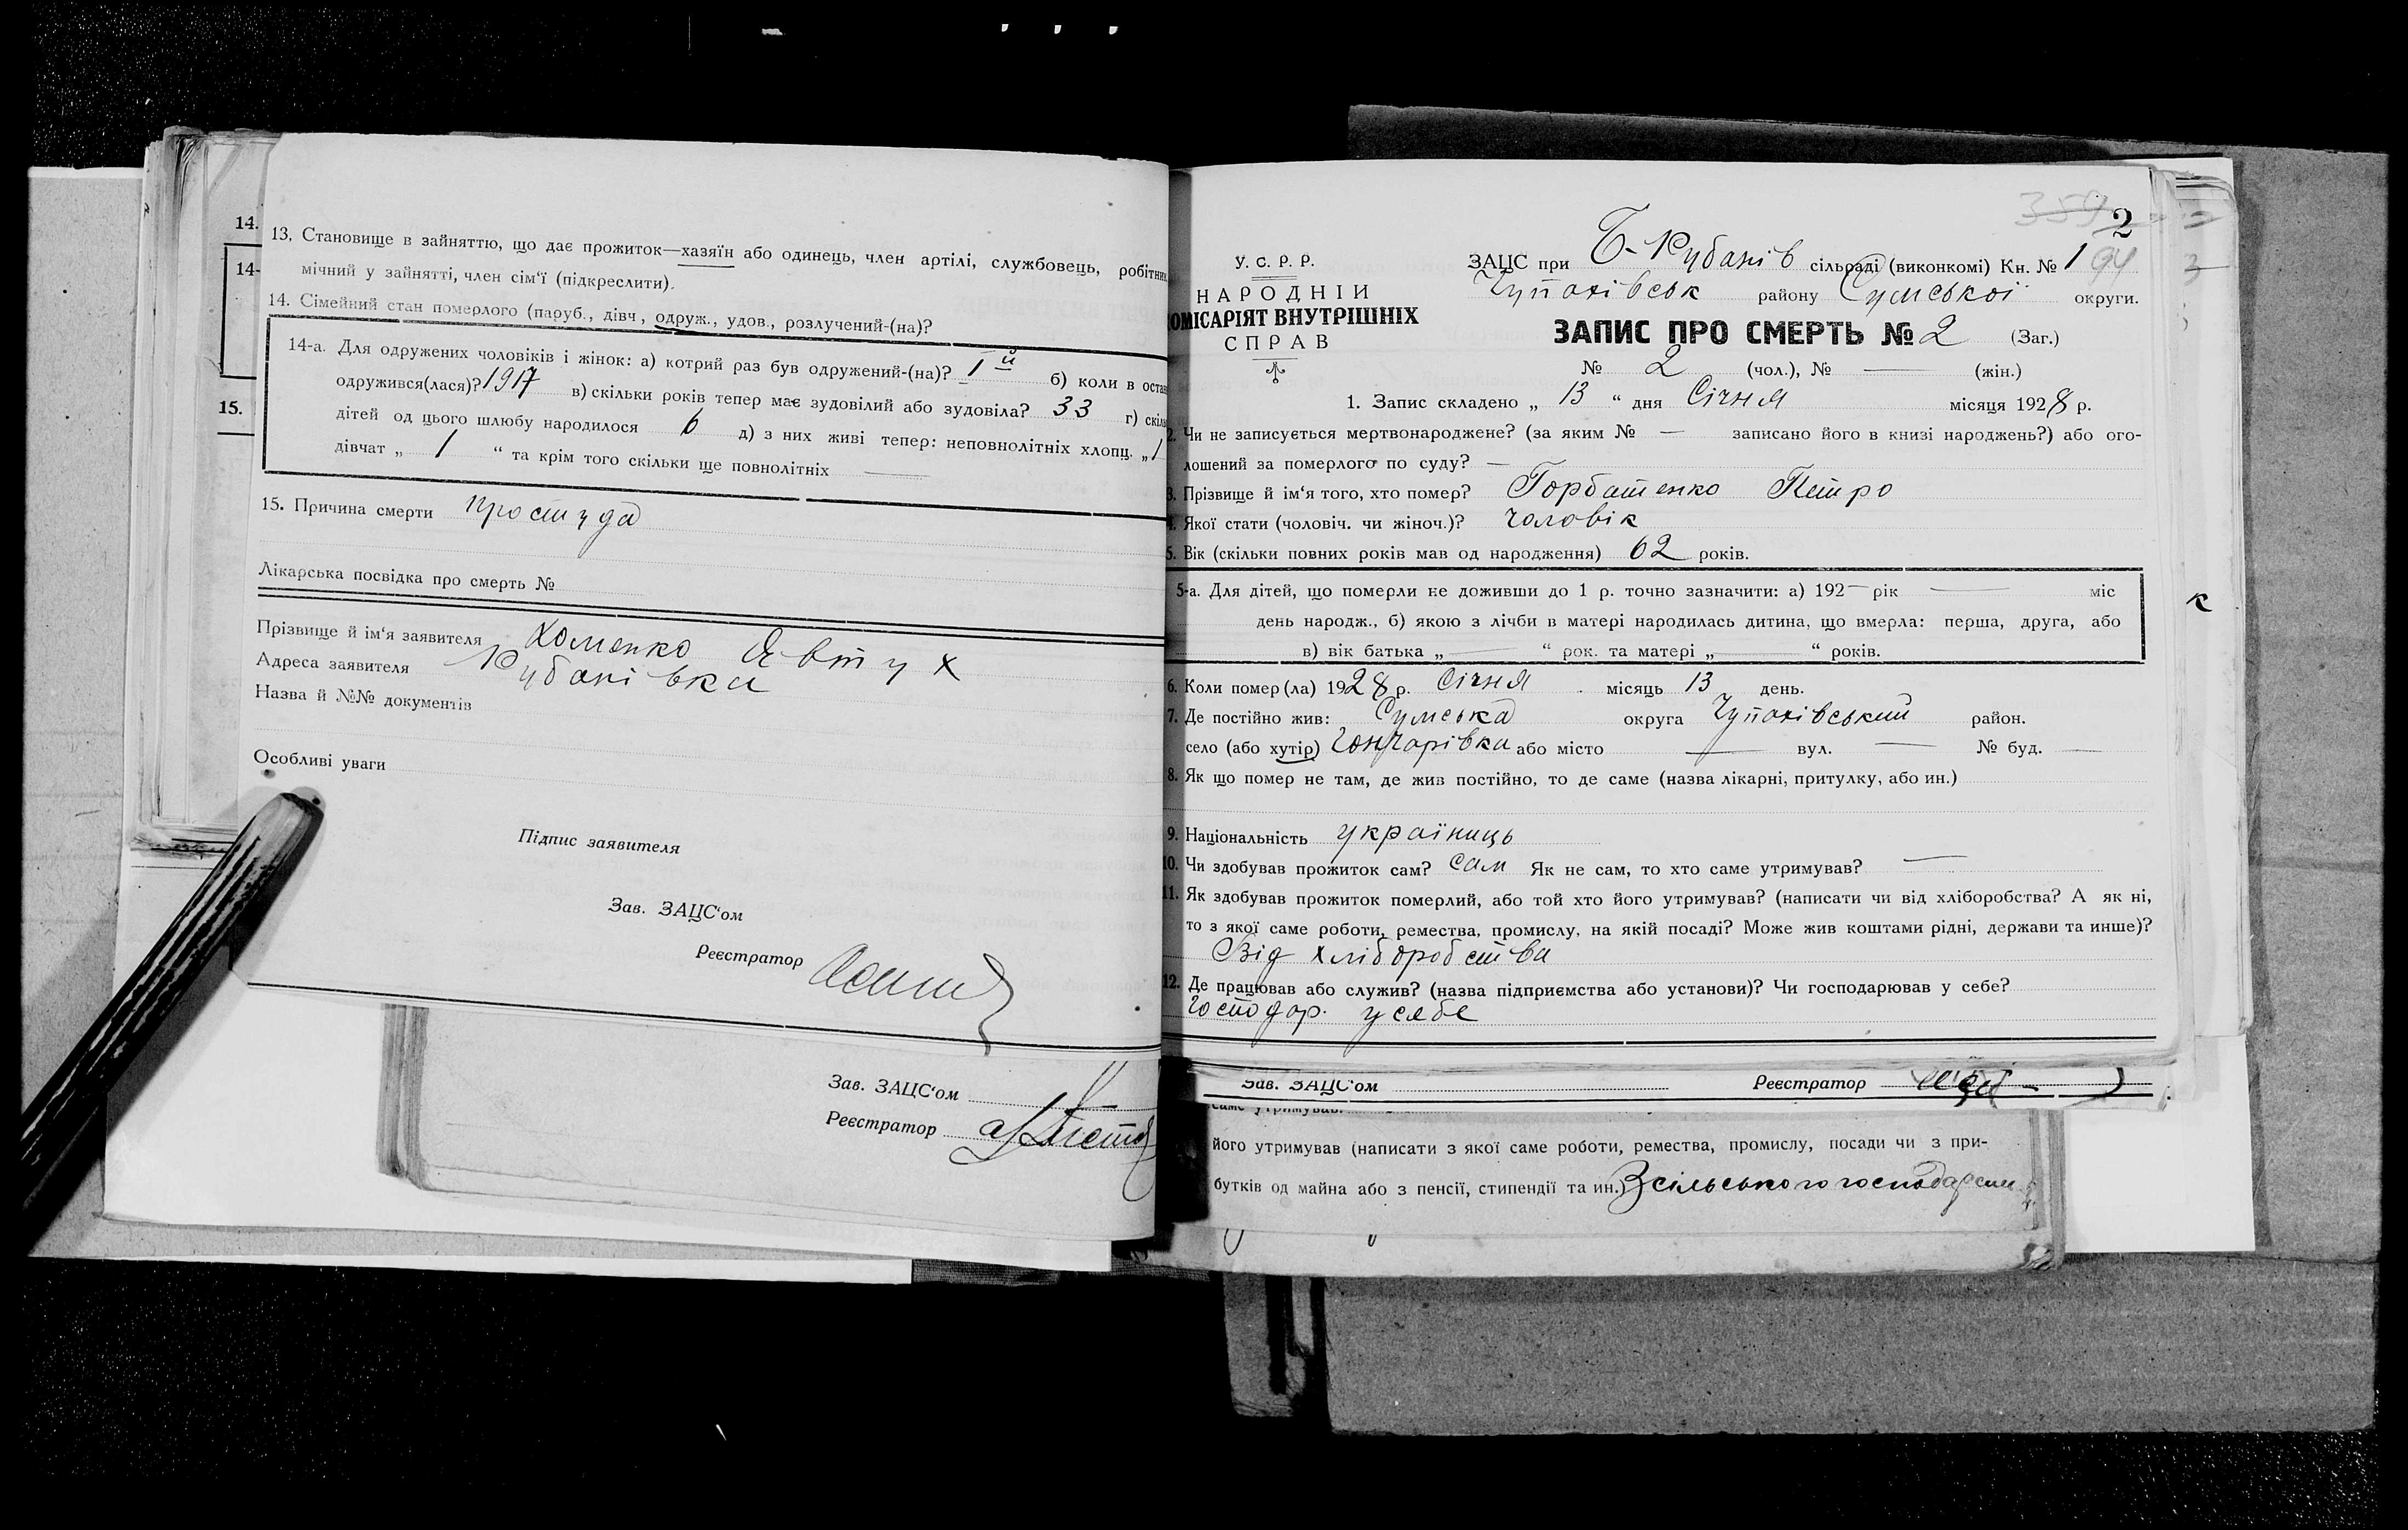 14.
14-
15.
13. Становище в зайняттю, що дає прожиток—хазяїн або одинець, член артілі, службовець, робітник
мічний у зайнятті, член сім'ї (підкреслити).
14. Сімейний стан померлого (паруб., дівч., одруж., удов., розлучений-(на)?
14-а. Для одружених чоловіків і жінок: а) котрий раз був одружений-(на)? 1й б) коли в остан
одружився(лася)? 1917 в) скільки років тепер має зудовілий або зудовіла? 33 г) скіль
дітей од цього шлюбу народилося 6 д) з них живі тепер: неповнолітніх хлопц. „1
дівчат „ 1 “ та крім того скільки ще повнолітніх —
15. Причина смерти простуда
Лікарська посвідка про смерть №
Прізвище й ім'я заявителя Хоменко Явтух
Адреса заявителя Кубанівка
Назва й №№ документів
Особливі уваги
Підпис заявителя
Зав. ЗАЦС'ом
Реєстратор
Зав. ЗАЦС'ом
Реєстратор
359
2
У. С. Р. Р.
НАРОДНІЙ
ОМІСАРІЯТ ВНУТРІШНІХ
СПРАВ
ЗАЦС при Б-Кубанів сільраді (виконкомі) Кн. № 1 94
Чупахівськ району Сумської округи.
ЗАПИС ПРО СМЕРТЬ № 2 (Заг.)
№ 2 (чол.), № — (жін.)
1. Запис складено „ 13 “ дня Січня місяця 1928 р.
2. Чи не записується мертвонароджене? (за яким № — записано його в книзі народжень?) або ого-
лошений за померлого по суду? —
3. Прізвище й ім'я того, хто помер? Горбатенко Петро
4. Якої стати (чоловіч. чи жіноч.)? чоловік
5. Вік (скільки повних років мав од народження) 62 років.
5-а. Для дітей, що померли не доживши до 1 р. точно зазначити: а) 192— рік — міс
день народж., б) якою з лічби в матері народилась дитина, що вмерла: перша, друга, або
в) вік батька „ — “ рок. та матері „ — “ років.
6. Коли помер(ла) 1928 р. Січня місяць 13 день.
7. Де постійно жив: Сумська округа Чупахівський район.
село (або хутір) Гончарівка або місто — вул. — № буд. —
8. Як що помер не там, де жив постійно, то де саме (назва лікарні, притулку, або ин.)
9. Національність україниць
10. Чи здобував прожиток сам? Сам Як не сам, то хто саме утримував? —
11. Як здобував прожиток померлий, або той хто його утримував? (написати чи від хліборобства? А як ні,
то з якої саме роботи, ремества, промислу, на якій посаді? Може жив коштами рідні, держави та инше)?
Від хліборобства
12. Де працював або служив? (назва підприємства або установи)? Чи господарював у себе?
господар. у себе
Зав. ЗАЦС'ом Реєстратор
саме утримував.
його утримував (написати з якої саме роботи, ремества, промислу, посади чи з при-
бутків од майна або з пенсії, стипендії та ин.) З сільського господарст
к